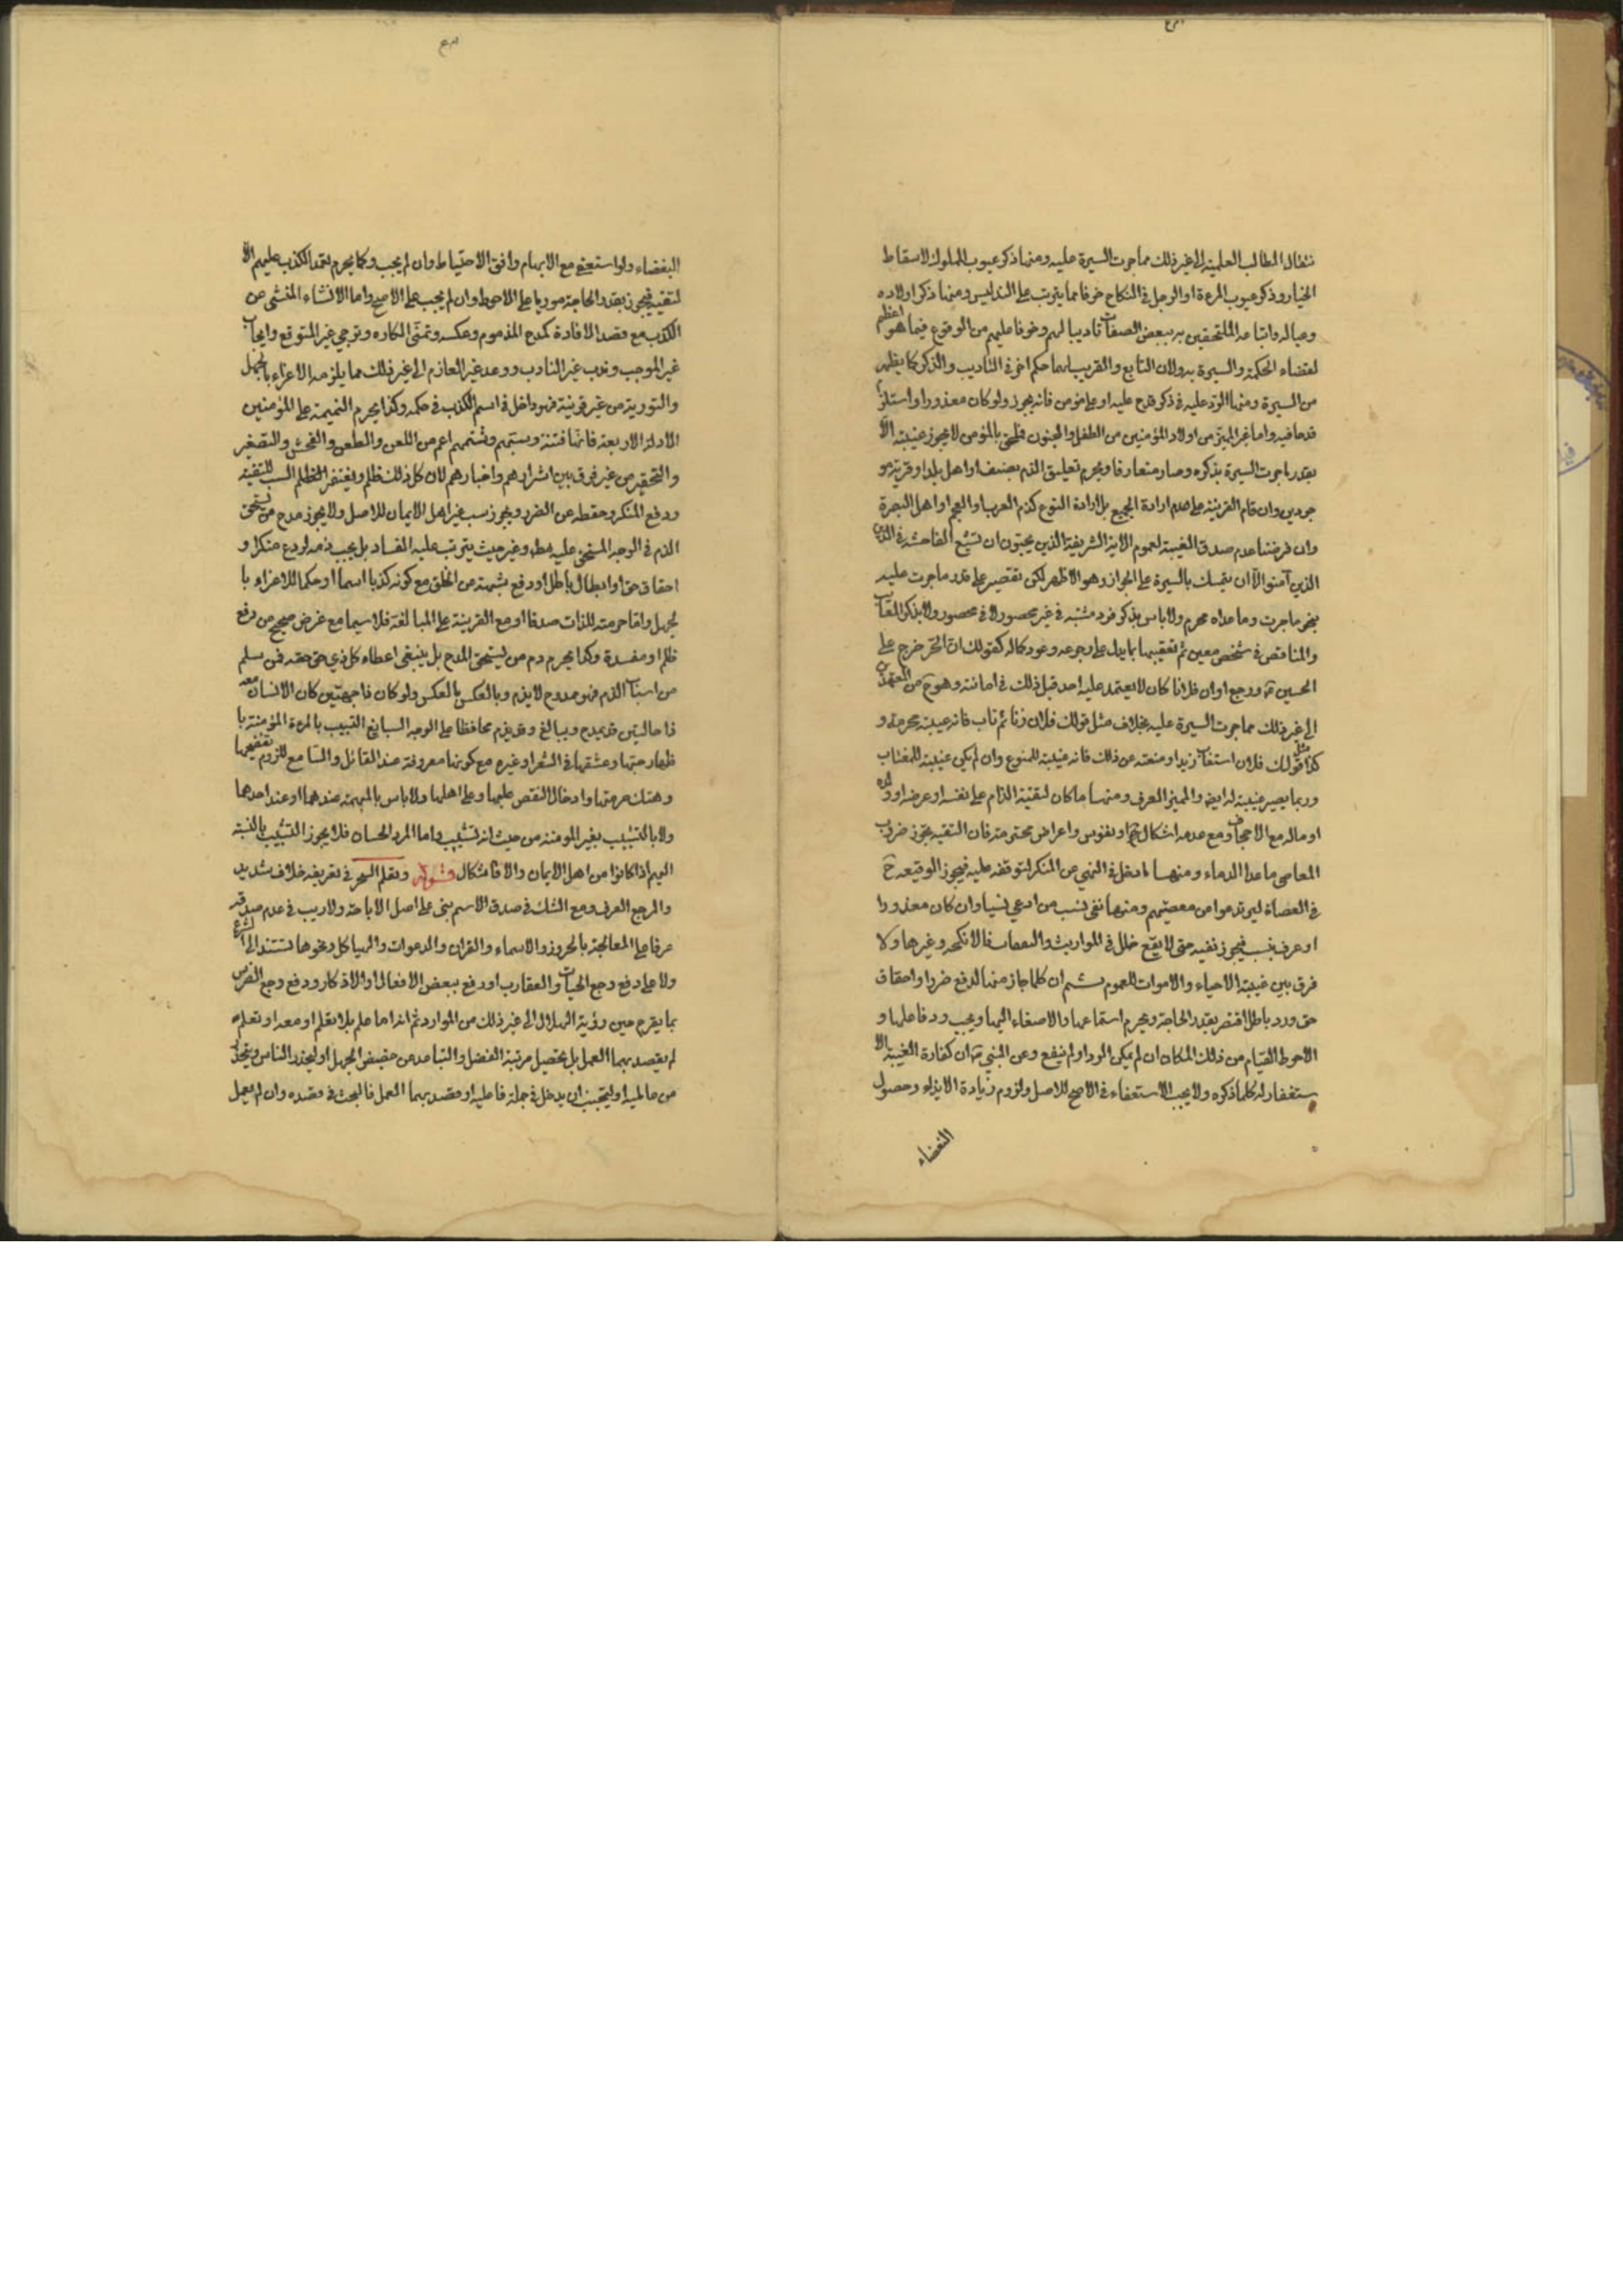 تنفال المطالب العلمية الى غير ذلك مما جرت السيرة عليه ومنها ذكر عيوب المملوك لاسقاط
الخيار وذكر عيوب المرءة او الرجل في النكاح خوفا مما يترتب على التدليس ومنها ذكر اولاده
وعياله واتباعه الملتحقين به ببعض الصفات تاديبا لهم وخوفا عليهم من الوقوع فيما هو اعظم
لقضاء الحكمة والسيرة به ولان التابع والقريب لهما حكم اخر في التاديب والذكر كما يظهر
من السيرة ومنها الرد عليه في ذكر قدح عليه او على مؤمن فانه يجوز ولو كان معذورا واستلزم
قدحا فيه واما غير المميز من اولاد المؤمنين من الطفل والمجنون فملحق بالمؤمن لا يجوز غيبته الا
بقدر ما جرت السيرة بذكره وصار متعارفا ويحرم تعليق الذم بصنف او اهل بلد او قرية مو
جودين وان قام القرينة على عدم ارادة الجميع بل ارادة النوع كذم العرب او العجم او اهل البصرة
وان فرضنا عدم صدق الغيبة لعموم الاية الشريفة الذين يحبون ان تشيع الفاحشة في الذين
الذين آمنوا الا ان يتمسك بالسيرة على الجواز وهو الاظهر لكن نقتصر على قدر ما جرت عليه
بنحو ما جرت وما عداه محرم ولا باس بذكر فرد مشتبه في غير محصور لا في محصور ولا بذكر المعاب
والمناقص في شخص معين ثم تعقيبها بما يدل على رجوعه وعود كماله كقولك ان الحر خرج على
الحسين ع ورجع او ان فلانا كان لا يعتمد عليه احد قبل ذلك في امانته وهو ح من المعتمدين
الى غير ذلك مما جرت السيرة عليه بخلاف مثل قولك فلان زنا ثم تاب فانه غيبة محرمة و
كذا مثل قولك فلان استغاب زيدا ومنعته عن ذلك فانه غيبة للممنوع وان لم يكن غيبة للمغتاب
وربما يصير غيبة له ايضا والمميز العرف ومنها ما كان لتقية الذام على نفسه او عرضه او ولده
او ماله مع الاجحاف ومع عدمه اشكال او نفوس واعراض محترمة فان التقية تجوز ضروب
المعاصي ما عدا الدماء ومنها ما دخل في النهي عن المنكر لتوقفه عليه فيجوز الوقيعة ح
في العصاة ليرتدعوا من معصيتهم ومنها نفي نسب من ادعى نسبا وان كان معذورا
او عرف بنسب فيجوز نفيه حتى لا يقع خلل في المواريث والنفقات والانكحة وغيرها ولا
فرق بين غيبة الاحياء والاموات للعموم ثم ان كلما جاز منها لدفع ضرر او احقاق
حق ورد باطل اقتصر بقدر الحاجة ويحرم استماعها والاصغاء اليها ويجب رد فاعلها و
الاحوط القيام من ذلك المكان ان لم يمكن الرد او لم ينفع وعن النبي ص ان كفارة الغيبة الا
ستغفار له كلما ذكره ولا يجب الاستعفاء في الاصح للاصل ولزوم زيادة الايذاء وحصول
البغضاء
البغضاء ولو استعفى مع الابهام وافق الاحتياط وان لم يجب وكما يحرم تعمد الكذب عليهم الا
لتقية فيجوز بقدر الحاجة موريا على الاحوط وان لم يجب على الاصح واما الانشاء المنشئ عن
الكذب مع قصد الافادة كمدح المذموم وعكسه وتمنى المكاره وترجي غير المتوقع وايجاب
غير الموجب وندب غير النادب ووعد غير العازم الى غير ذلك مما يلزمه الاغراء بالجهل
والتورية من غير قرينة فهو داخل في اسم الكذب في حكمه وكذا يحرم النميمة على المؤمنين
للادلة الاربعة فانها فتنة وسبهم وشتمهم اعم من اللعن والطعن والفحش والتصغير
والتحقير من غير فرق بين اشرارهم واخيارهم لان كل ذلك ظلم ويغتفر الظلم السب للتقية
ودفع المنكر وحفظه عن الضرر ويجوز سب غير اهل الايمان للاصل ولا يجوز مدح من يستحق
الذم في الوجه المستحق عليه مط وغير حيث يترتب عليه الفساد بل يجب ذمه لو دع منكرا و
احقاق حق او ابطال باطل او رفع شبهة عن الخلق مع كونه كذبا اسما او حكما للاغراء با
لجهل واقاحرمته للذات صدقا او مع القرينة على المبالغة فلا سيما مع غرض صحيح من رفع
ظلم او مفسدة وكما يحرم ذم من يستحق المدح بل ينبغي اعطاء كل ذي حق حقه فمن سلم
من اسباب الذم فهو ممدوح لا يذم وبالعكس بالعكس ولو كان ذا جهتين كان الانسان معه
ذا حالتين قد يمدح ويبالغ وقد يذم محافظا على الوجه السابغ التشبيب بالمرءة المؤمنة با
ظهار حبها وعشقها في الشعر او غيره مع كونها معروفة عند القائل والسامع للزوم تفضيحها
وهتك حرمتها وادخال النقص عليها وعلى اهلها ولا باس بالمبهمة عندهما او عند احدهما
ولا بالتشبيب بغير المومنة من حيث انه تشبيب واما المرد الحسان فلا يجوز التشبيب بالنسبة
اليهم اذا كانوا من اهل الايمان والا فاشكال وتعلم السحر في تعريفه خلاف شديد
والمرجع العرف ومع الشك في صدق الاسم يبنى على اصل الاباحة ولا ريب في عدم صدقه
عرفا على المعالجة بالحروز والاسماء والقران والدعوات والهياكل ونحوها تستند الى الشرع
ولا على دفع وجع الحيات والعقارب او دفع ببعض الافعال او الاذكار ودفع وجع الضرس
بما يقرء حين رؤية الهلال الى غير ذلك من الموارد ثم انه اما علم بلا تعلم او معه او تعلمه
لم يقصد بهما العمل بل تحصيل مرتبة الفضل والتباعد عن حضيض الجهل او ليحذر الناس ويتحذر
من عامليه او ليتجنب ان يدخل في جملة فاعليه او قصد بهما العمل فالبحث في قصده وان لم يعمل